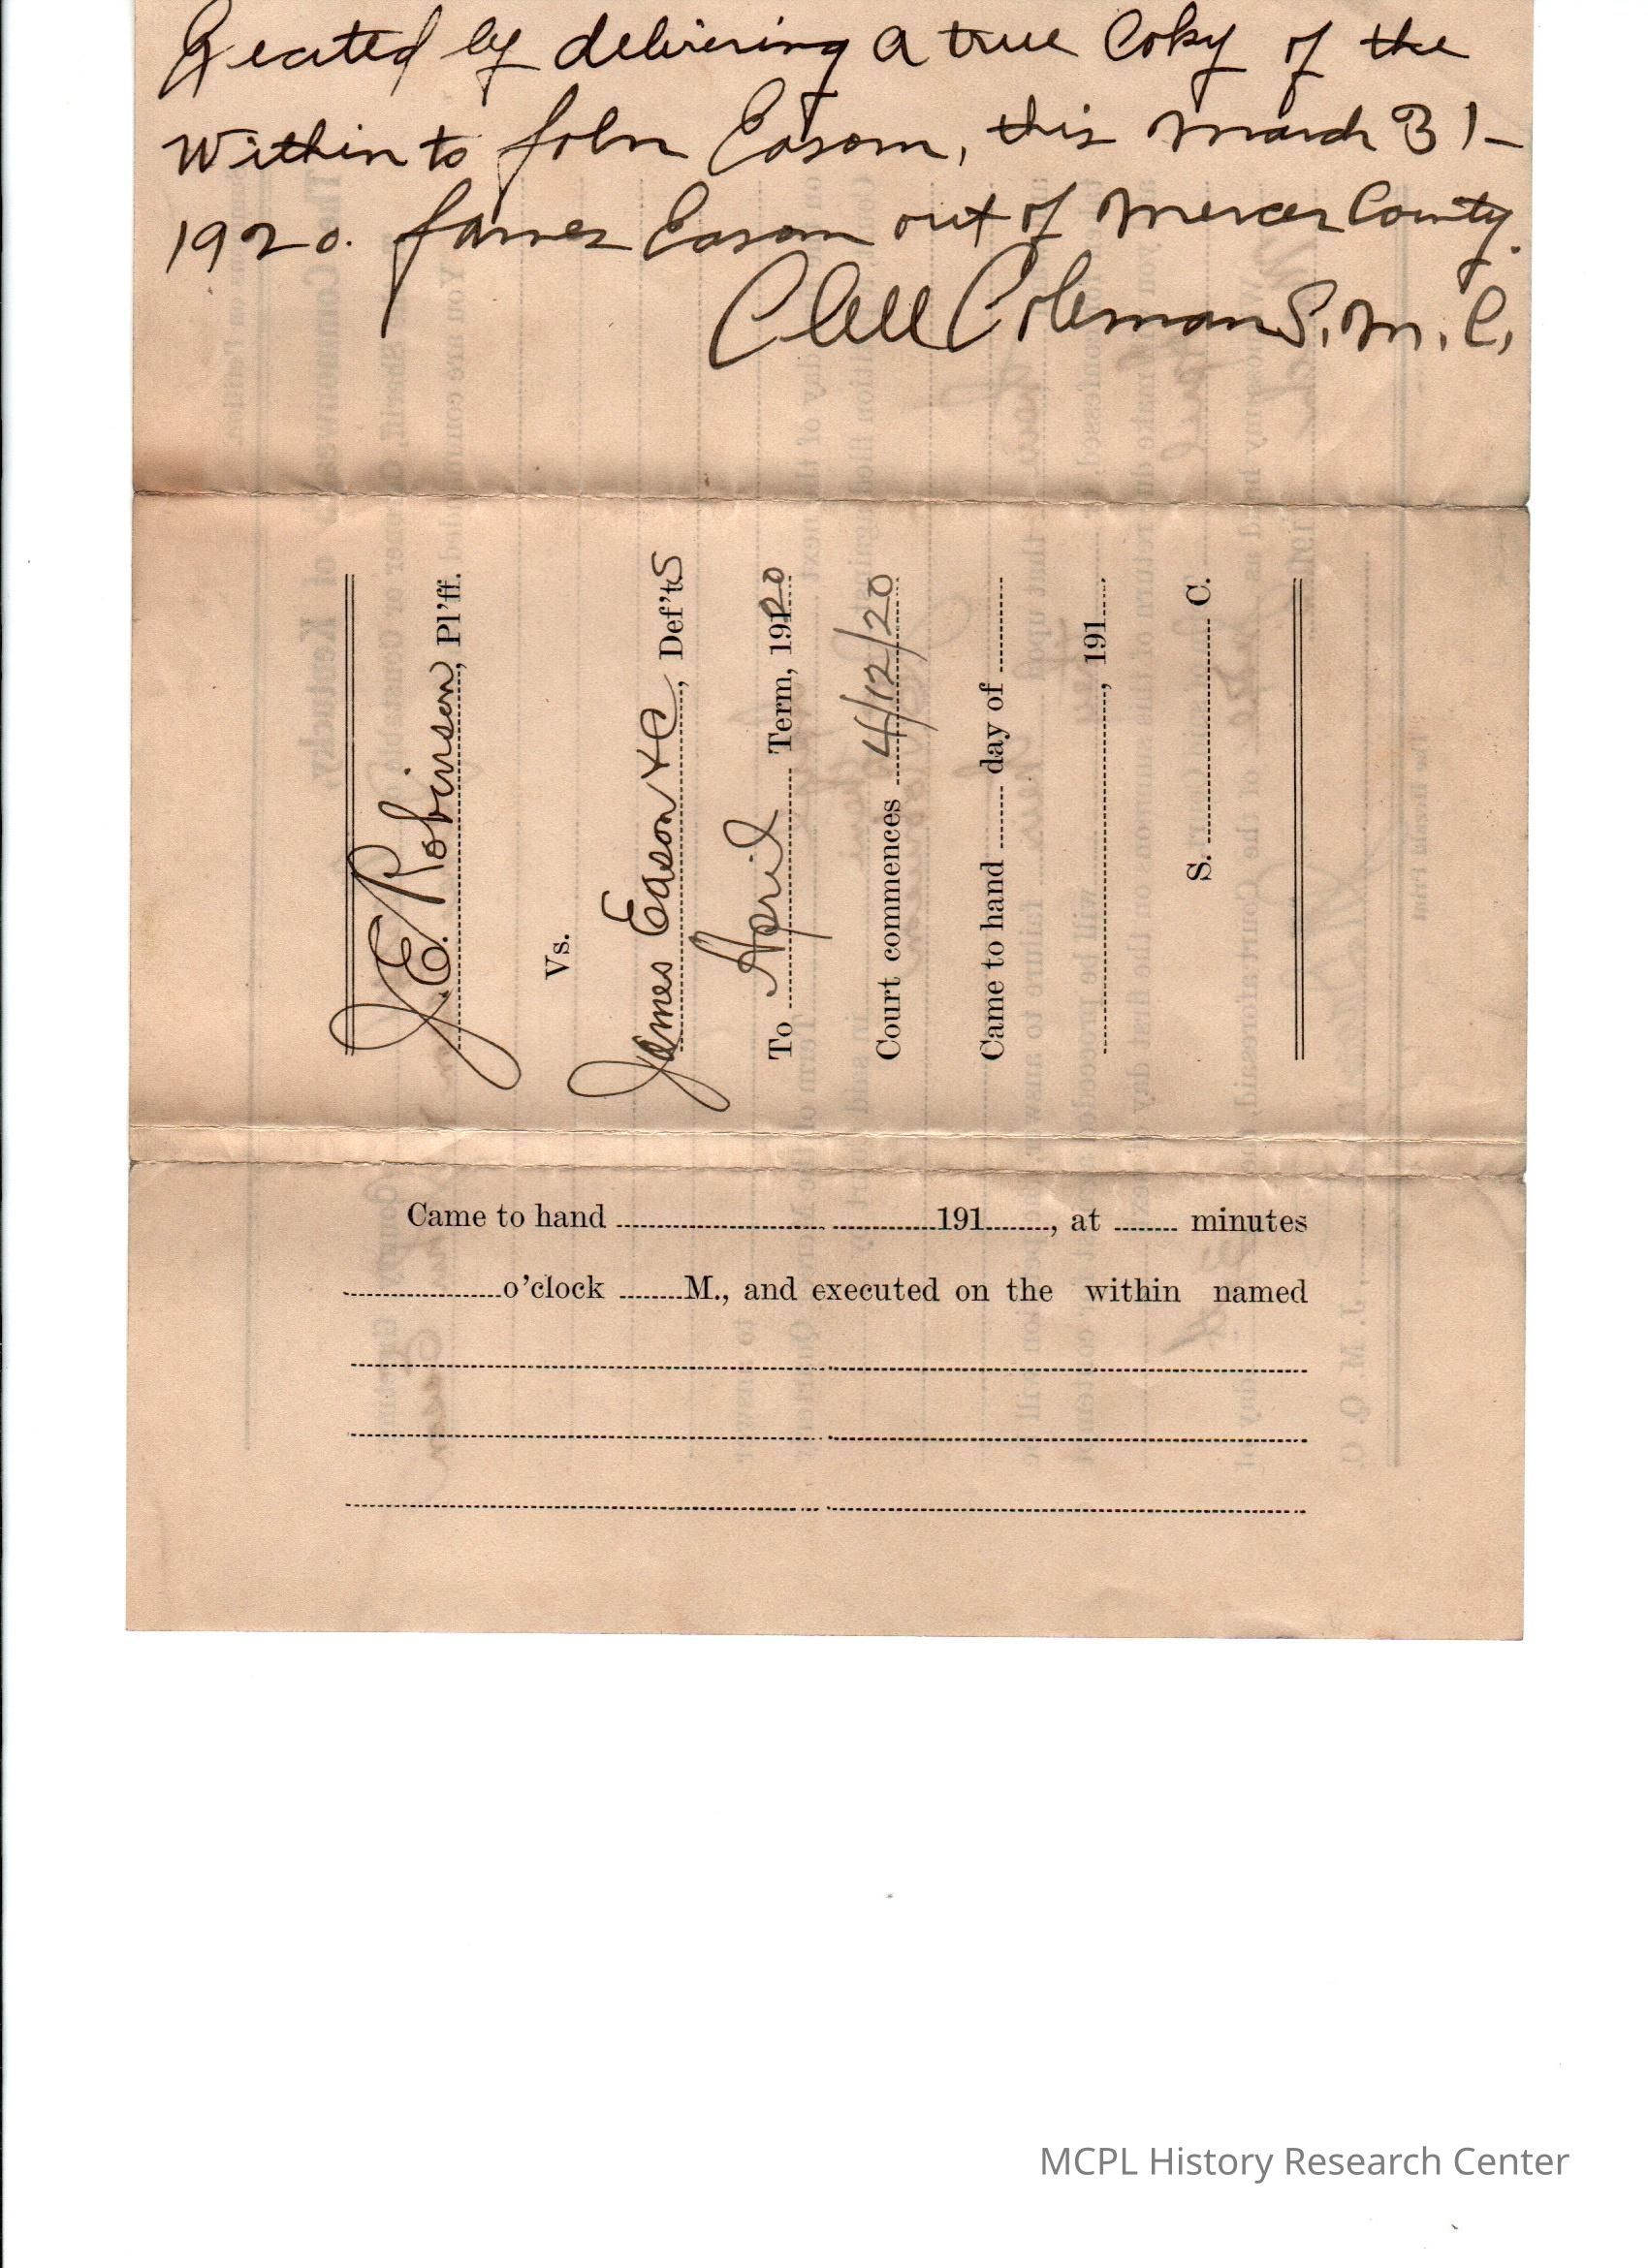 Executed by delivering a true Copy of the
Within to John Eason, this March 31-
1920. James Eason out of Mercer County.
Clell Coleman S. M. C.
J. E. Robinson, Pl'ff.
Vs.
James Eason &c, Def'ts
To April Term, 1920
Court commences 4/12/20
Came to hand day of
, 191
S. C.
Came to hand 191, at minutes
o'clock M., and executed on the within named
MCPL History Research Center